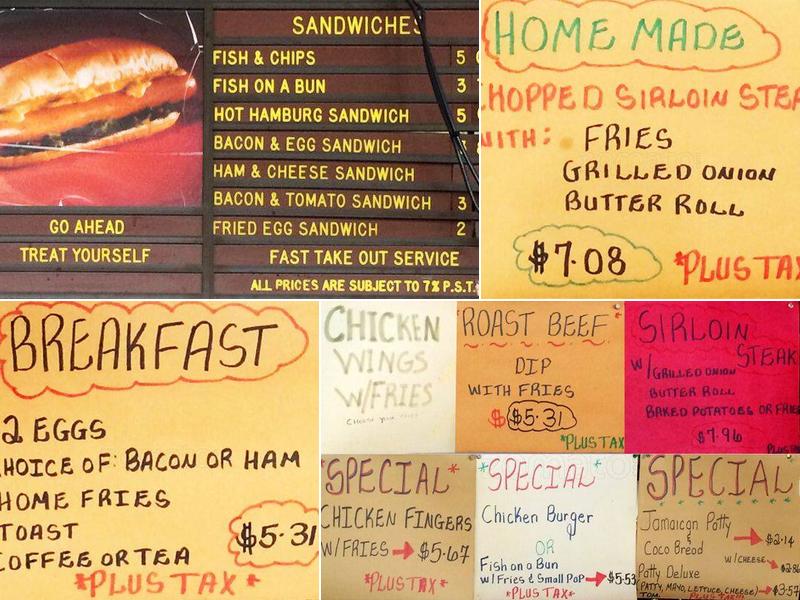 SANDWICHES
FISH & CHIPS 5
FISH ON A BUN 3
HOT HAMBURG SANDWICH 5
BACON & EGG SANDWICH 4
HAM & CHEESE SANDWICH
BACON & TOMATO SANDWICH 3
FRIED EGG SANDWICH 2
GO AHEAD
TREAT YOURSELF
FAST TAKE OUT SERVICE
ALL PRICES ARE SUBJECT TO 7% P.S.T.
HOME MADE
HOPPED SIRLOIN STEA
WITH: FRIES
GRILLED ONION
BUTTER ROLL
$7.08 *PLUS TAX
BREAKFAST
2 EGGS
HOICE OF: BACON OR HAM
HOME FRIES
TOAST
COFFEE OR TEA
$5.31
*PLUS TAX*
CHICKEN
WINGS
W/FRIES
ROAST BEEF
DIP
WITH FRIES
$ $5.31
*PLUS TAX
SIRLOIN
STEAK
W/GRILLED ONION
BUTTER ROLL
BAKED POTATOES OR FRIE
$7.96
PLUS
*SPECIAL*
CHICKEN FINGERS
W/FRIES → $5.67
*PLUS TAX*
*SPECIAL*
Chicken Burger
OR
Fish on a Bun
w/ Fries & Small Pop → $5.53
*PLUS TAX*
SPECIAL
Jamaican Patty
&
Coco Bread → $2.14
W/CHEESE → $2.8
Patty Deluxe
(PATTY, MAYO, LETTUCE, CHEESE) → $3.57
TOM.
PLUS TAX